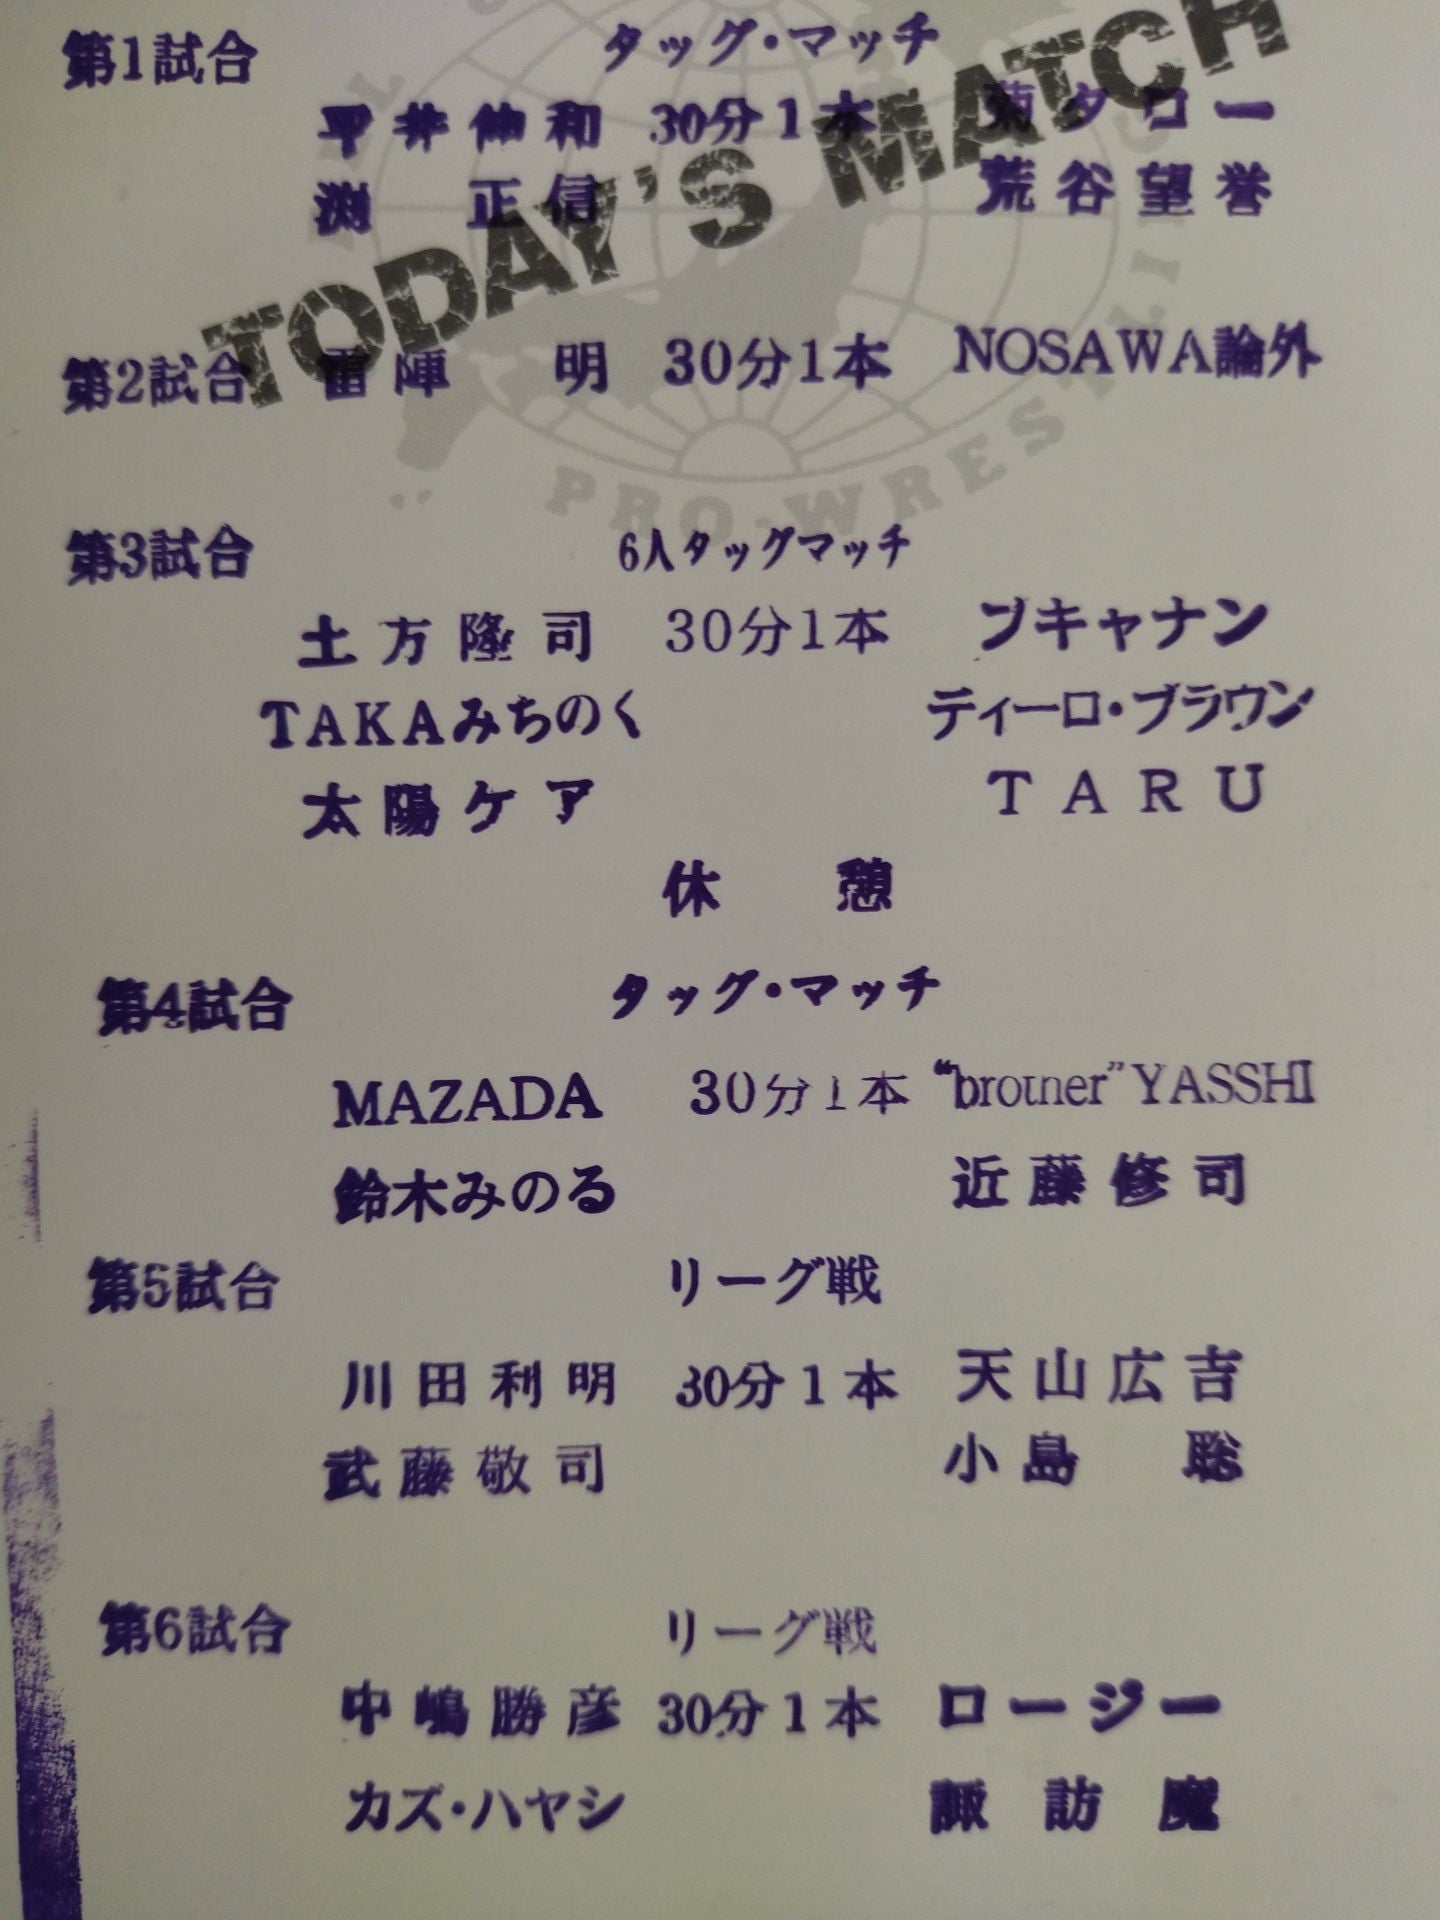 TODAY'S MATCH
PRO-WRESTLI
第1試合 タッグ・マッチ
平井伸和 30分1本 菊タロー
渕 正信 荒谷望誉
第2試合 雷陣 明 30分1本 NOSAWA論外
第3試合 6人タッグマッチ
土方隆司 30分1本 ブキャナン
TAKAみちのく ティーロ・ブラウン
太陽ケア TARU
休憩
第4試合 タッグ・マッチ
MAZADA 30分1本 “brother”YASSHI
鈴木みのる 近藤修司
第5試合 リーグ戦
川田利明 30分1本 天山広吉
武藤敬司 小島 聡
第6試合 リーグ戦
中嶋勝彦 30分1本 ロージー
カズ・ハヤシ 諏訪魔